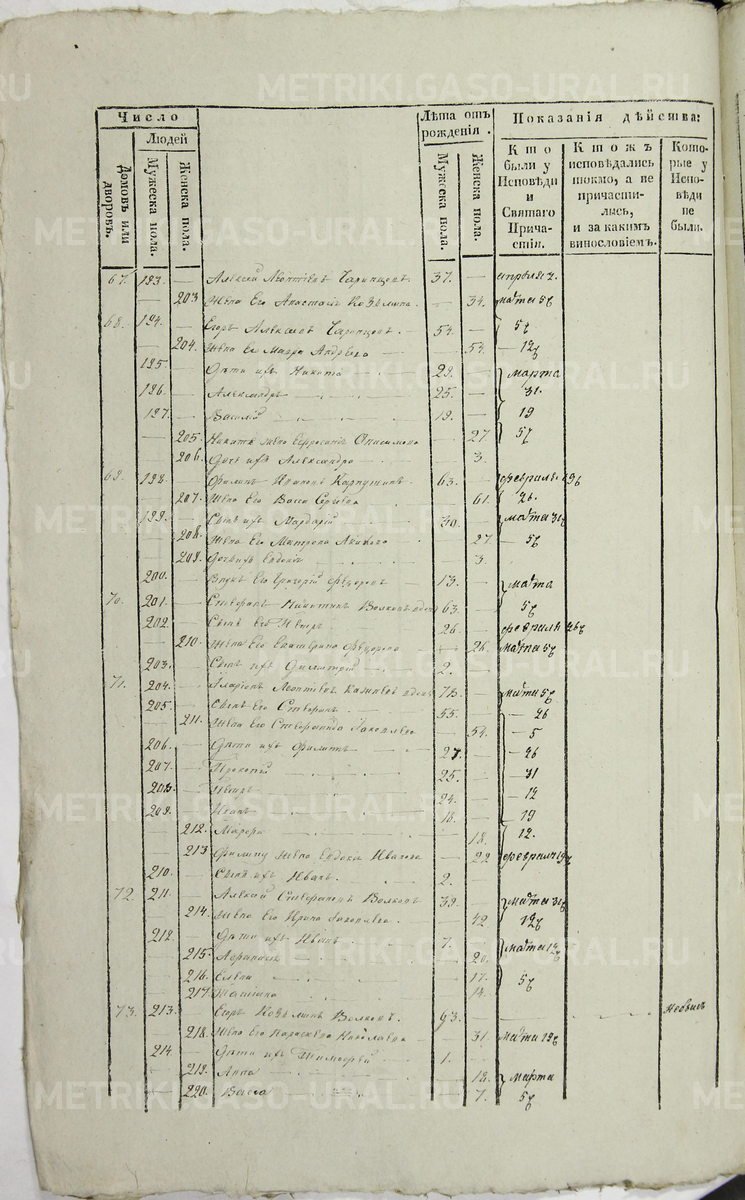 METRIKI.GASO-URAL.RU
Число
Людей
Домовъ или дворовъ.
Мужеска пола.
Женска пола.
Лѣта отъ рожденія.
Мужеска пола.
Женска пола.
Показанія дѣйства:
Кто были у Исповѣди и Святаго Прича-стія.
Ктожъ исповѣдались токмо, а не причасти-лись, и за какимъ винословіемъ.
Кото-рые у Испо-вѣди не были.
67. 193. — Алексѣй Леонтіевъ 37. —
203 Жена Его Анастасія Козьмина — 34. марта 5
68. 194. — Егоръ Алексѣевъ 54. — 5
204. Жена Его Мавра Андреева — 54. — 12
195. Дѣти ихъ Никита 29. — марта
196. — Александръ 25. — 31.
197. — Василій 19. — 19
205. Никиты жена Ефросинія Онисимова 27 5
206. Дочь ихъ Александра 3.
69. 198. — Филипъ Карпушинъ 63. — февраля 19
207. Жена Его Васса Сергѣева 61. 26.
199. — Сынъ ихъ Мардарій 30. — марта 31
208. Жена Его Матрона 27 — 5
209. Дочь ихъ Евдокія 3.
200. — Внукъ Его Григорій Федоровъ 13. — марта
70. 201. — Никитинъ Волковъ вдовъ 63. — 5
202 — Сынъ Его Петръ 26. — февраля 26
210. Жена Его Екатерина Федорова — 26. марта 5
203. — Сынъ ихъ Димитрій 2. —
71. 204. — Ларіонъ Леонтіевъ вдовъ 75. — марта 5
205. — Сынъ Его 55. — — 26
211. Жена Его Яковлева 54. — 5
206. — Дѣти ихъ Филипъ 27. — — 26
207. — Прокопій 25. — — 31
208. — Петръ 24. — — 12
209. — Иванъ 18. — — 19
212. — 18. 12.
213 Филипу жена Евдокія Иванова — 22 февраля 19
210. — Сынъ ихъ Иванъ. 2. —
72. 211. — Алексѣй Волковъ 39. — марта 31
214. Жена Его Ирина Яковлева 42 12
212. — Дѣти ихъ Иванъ 7. — марта 12
215. 20.
216. Елена 17. 5
217. Татіана 14.
73. 213. — Егоръ Козьминъ Волковъ. 93. —
218. Жена Его Параскева 31. марта 19
214. — Дѣти ихъ Тимофей 1. —
219. Анна 18. марта
220. Васса 7. 5